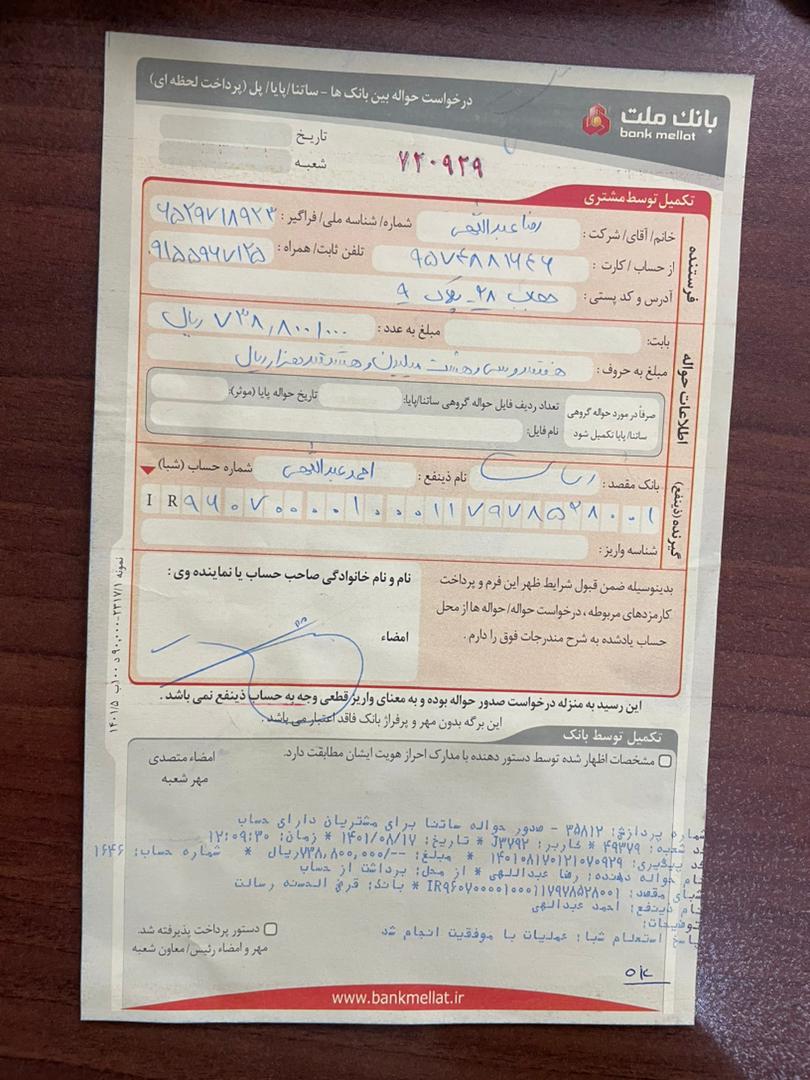 درخواست حواله بین بانک ها - ساتنا/پایا/ پل (پرداخت لحظه ای)
بانک ملت
bank mellat
تاریخ
شعبه
۷۲۰۹۲۹
تکمیل توسط مشتری
فرستنده
خانم/ آقای/ شرکت: رضا عبداللهی شماره/ شناسه ملی/ فراگیر: ۶۵۲۹۷۱۸۹۲۳
از حساب / کارت: ۹۵۷۴۸۸۱۶۴۶ تلفن ثابت/ همراه: ۹۱۵۵۹۶۷۱۲۵
آدرس و کد پستی: ۲۸ - پلاک ۹
اطلاعات حواله
بابت: مبلغ به عدد: ۷۳۸,۸۰۰,۰۰۰ ریال
مبلغ به حروف: هفتصد و سی و هشت میلیون و هشتصد هزار ریال
صرفاً در مورد حواله گروهی ساتنا/ پایا تکمیل شود
تعداد ردیف فایل حواله گروهی ساتنا/پایا: تاریخ حواله پایا (موثر):
نام فایل:
گیرنده (ذینفع)
بانک مقصد: رسالت نام ذینفع: احمد عبداللهی شماره حساب (شبا)
IR ۹۶۰۷۰۰۰۰۱۰۰۰۱۱۷۹۷۸۵۲۸۰۰۱
شناسه واریز:
بدینوسیله ضمن قبول شرایط ظهر این فرم و پرداخت
کارمزدهای مربوطه، درخواست حواله/ حواله ها از محل
حساب یادشده به شرح مندرجات فوق را دارم.
نام و نام خانوادگی صاحب حساب یا نماینده وی:
امضاء
این رسید به منزله درخواست صدور حواله بوده و به معنای واریز قطعی وجه به حساب ذینفع نمی باشد.
این برگه بدون مهر و پرفراژ بانک فاقد اعتبار می باشد.
تکمیل توسط بانک
مشخصات اظهار شده توسط دستور دهنده با مدارک احراز هویت ایشان مطابقت دارد.
امضاء متصدی
مهر شعبه
شماره پردازش: ۳۵۸۱۲ - صدور حواله ساتنا برای مشتریان دارای حساب
کد شعبه: ۴۹۳۷۹ * کاربر: J۳۷۹۲ * تاریخ: ۱۴۰۱/۰۸/۱۷ * زمان: ۱۲:۰۹:۳۰
کد پیگیری: ۱۴۰۱۰۸۱۷۰۱۲۱۰۷۰۹۲۹ * مبلغ: --/۷۳۸,۸۰۰,۰۰۰ریال * شماره حساب: ۱۶۴۶
نام حواله دهنده: رضا عبداللهی * از محل: برداشت از حساب
شبای مقصد: IR۹۶۰۷۰۰۰۰۱۰۰۰۱۱۷۹۷۸۵۲۸۰۰۱ * بانک: قرض الحسنه رسالت
نام ذینفع: احمد عبدالهی
توضیحات:
پاسخ استعلام شبا: عملیات با موفقیت انجام شد
دستور پرداخت پذیرفته شد.
مهر و امضاء رئیس/ معاون شعبه
ok
www.bankmellat.ir